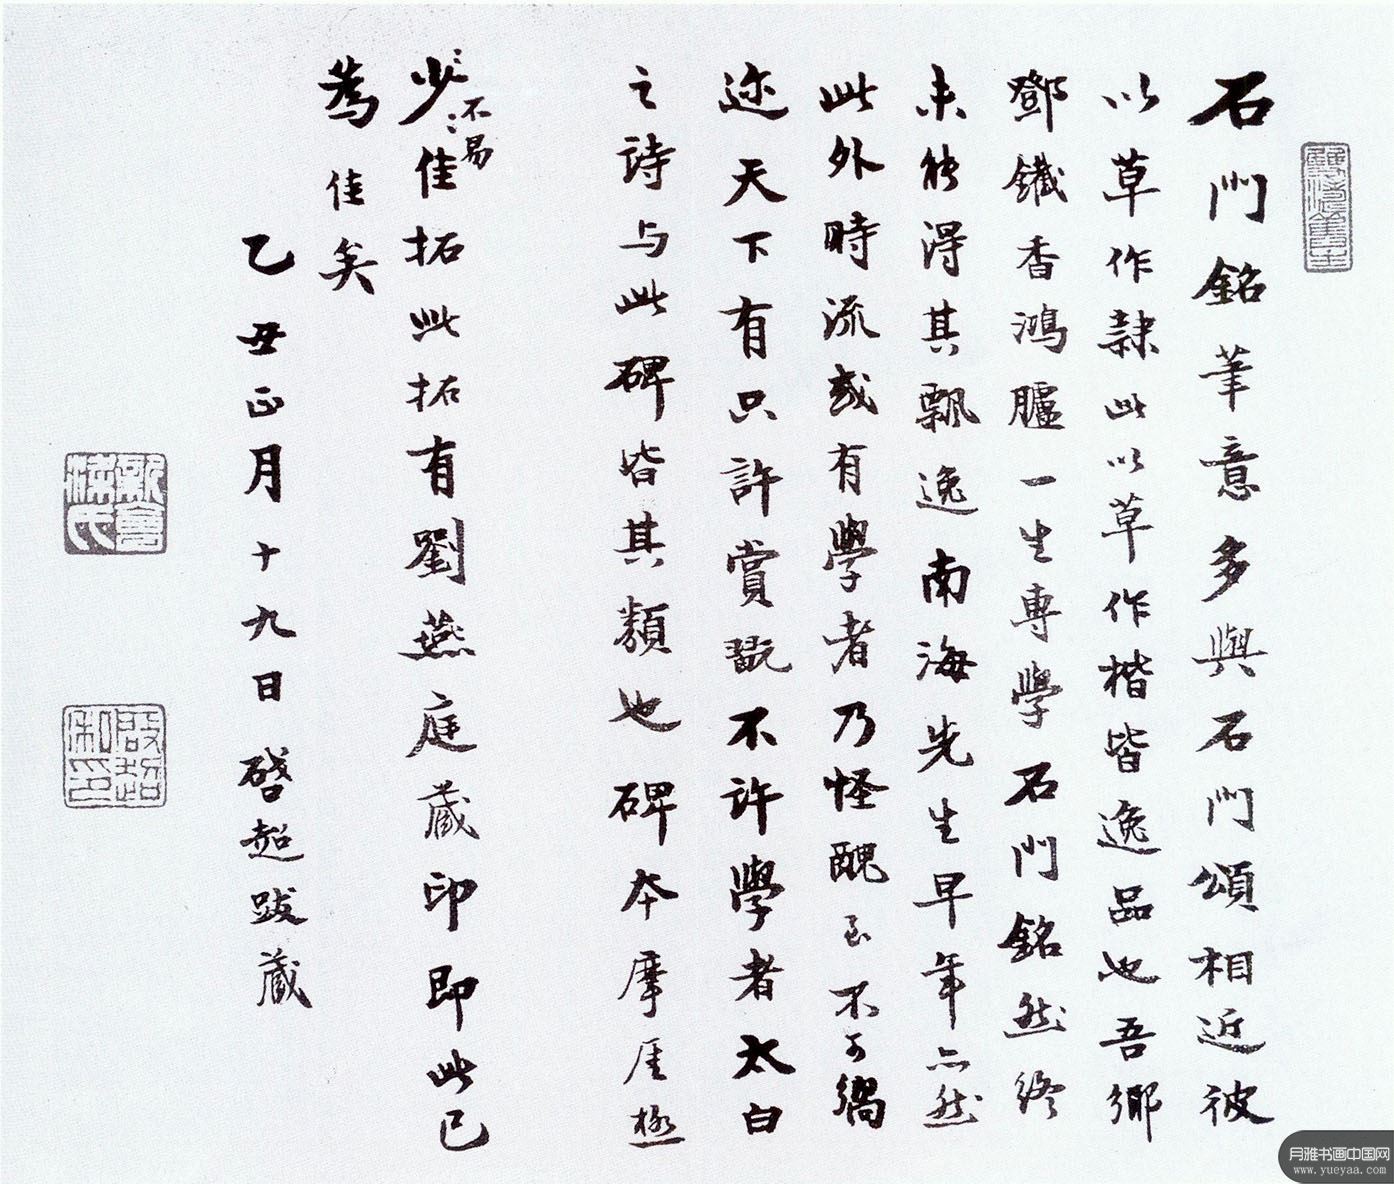 石門銘筆意多與石門頌相近彼
以草作隸此以草作楷皆逸品也吾鄉
鄧鐵香鴻臚一生專學石門銘然終
未能得其飄逸南海先生早年亦然
此外時流或有學者乃怪醜至不可嚮
迩天下有只許賞翫不許學者太白
之詩与此碑皆其類也碑本摩厓極
不易
少佳拓此拓有劉燕庭藏印即此已
為佳矣
乙丑正月十九日啓超跋藏
新會梁氏
啟超私印
月雅书画中国网
www.yueyaa.com